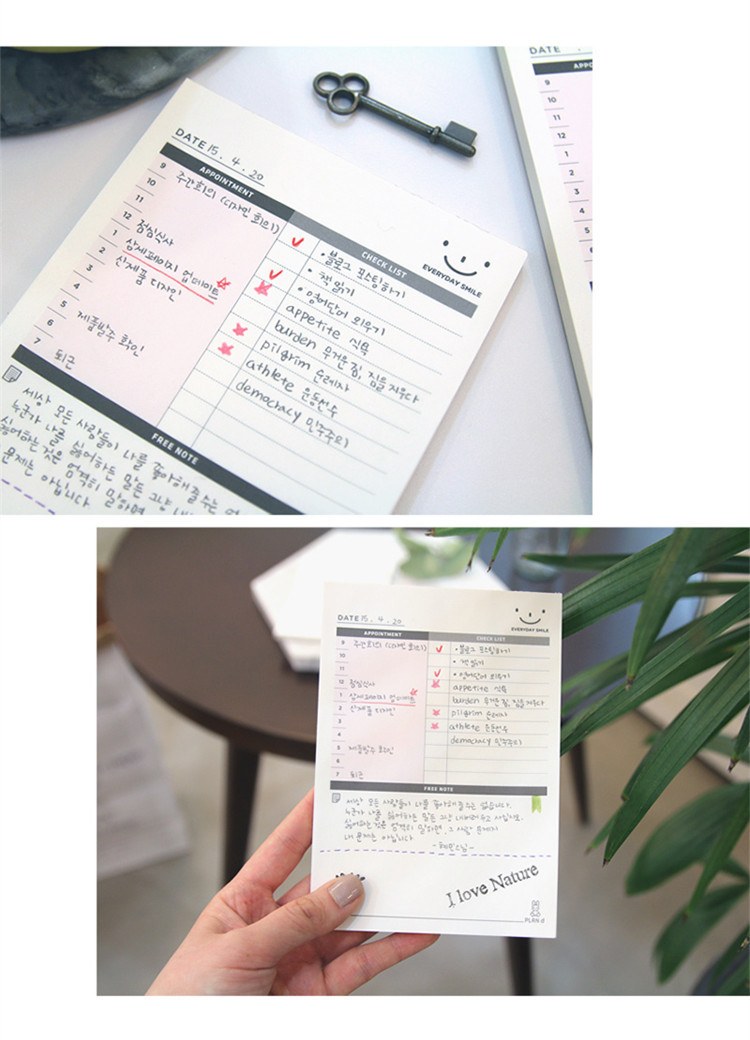 DATE 15 . 4 . 20
EVERYDAY SMILE
APPOINTMENT
CHECK LIST
9 주간회의 (디자인 회의)
10
11
12 점심식사
1 상세페이지 업데이트
2 신제품 디자인
3
4
5 제품발주 확인
6
7 퇴근
• 블로그 포스팅하기
• 책 읽기
• 영어단어 외우기
appetite 식욕
burden 무거운 짐, 짐을 지우다
pilgrim 순례자
athlete 운동선수
democracy 민주주의
FREE NOTE
세상 모든 사람들이 나를 좋아해줄수는
누군가 나를 싫어하는 말든 그냥
싫어하는 것은 엄격히 말하면
문제는 아닙니다.
DATE
APPO
9
10
11
12
1
2
3
4
5
DATE 15 . 4 . 20
EVERYDAY SMILE
APPOINTMENT
CHECK LIST
9 주간회의 (디자인 회의)
10
11
12 점심식사
1 상세페이지 업데이트
2 신제품 디자인
3
4
5 제품발주 확인
6
7 퇴근
• 블로그 포스팅하기
• 책 읽기
• 영어단어 외우기
appetite 식욕
burden 무거운 짐, 짐을 지우다
pilgrim 순례자
athlete 운동선수
democracy 민주주의
FREE NOTE
세상 모든 사람들이 나를 좋아해줄수는 없습니다.
누군가 나를 싫어하는 말든 그냥 내버려 두고 사십시오.
싫어하는 것은 엄격히 말하면, 그 사람 문제지
내 문제는 아닙니다.
I love Nature
PLAN d